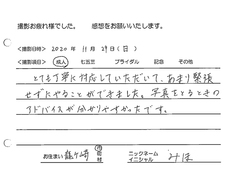 撮影お疲れ様でした。 感想をお願いいたします。
<撮影日時> 2020年 11月 29日(日)
<撮影項目> 成人 七五三 ブライダル 記念 その他
とても丁寧に対応していただいて、あまり緊張
せずにやることができました。写真をとるときの
アドバイスが分かりやすかったです。
お住まい 龍ヶ崎 市 ニックネーム イニシャル みほ